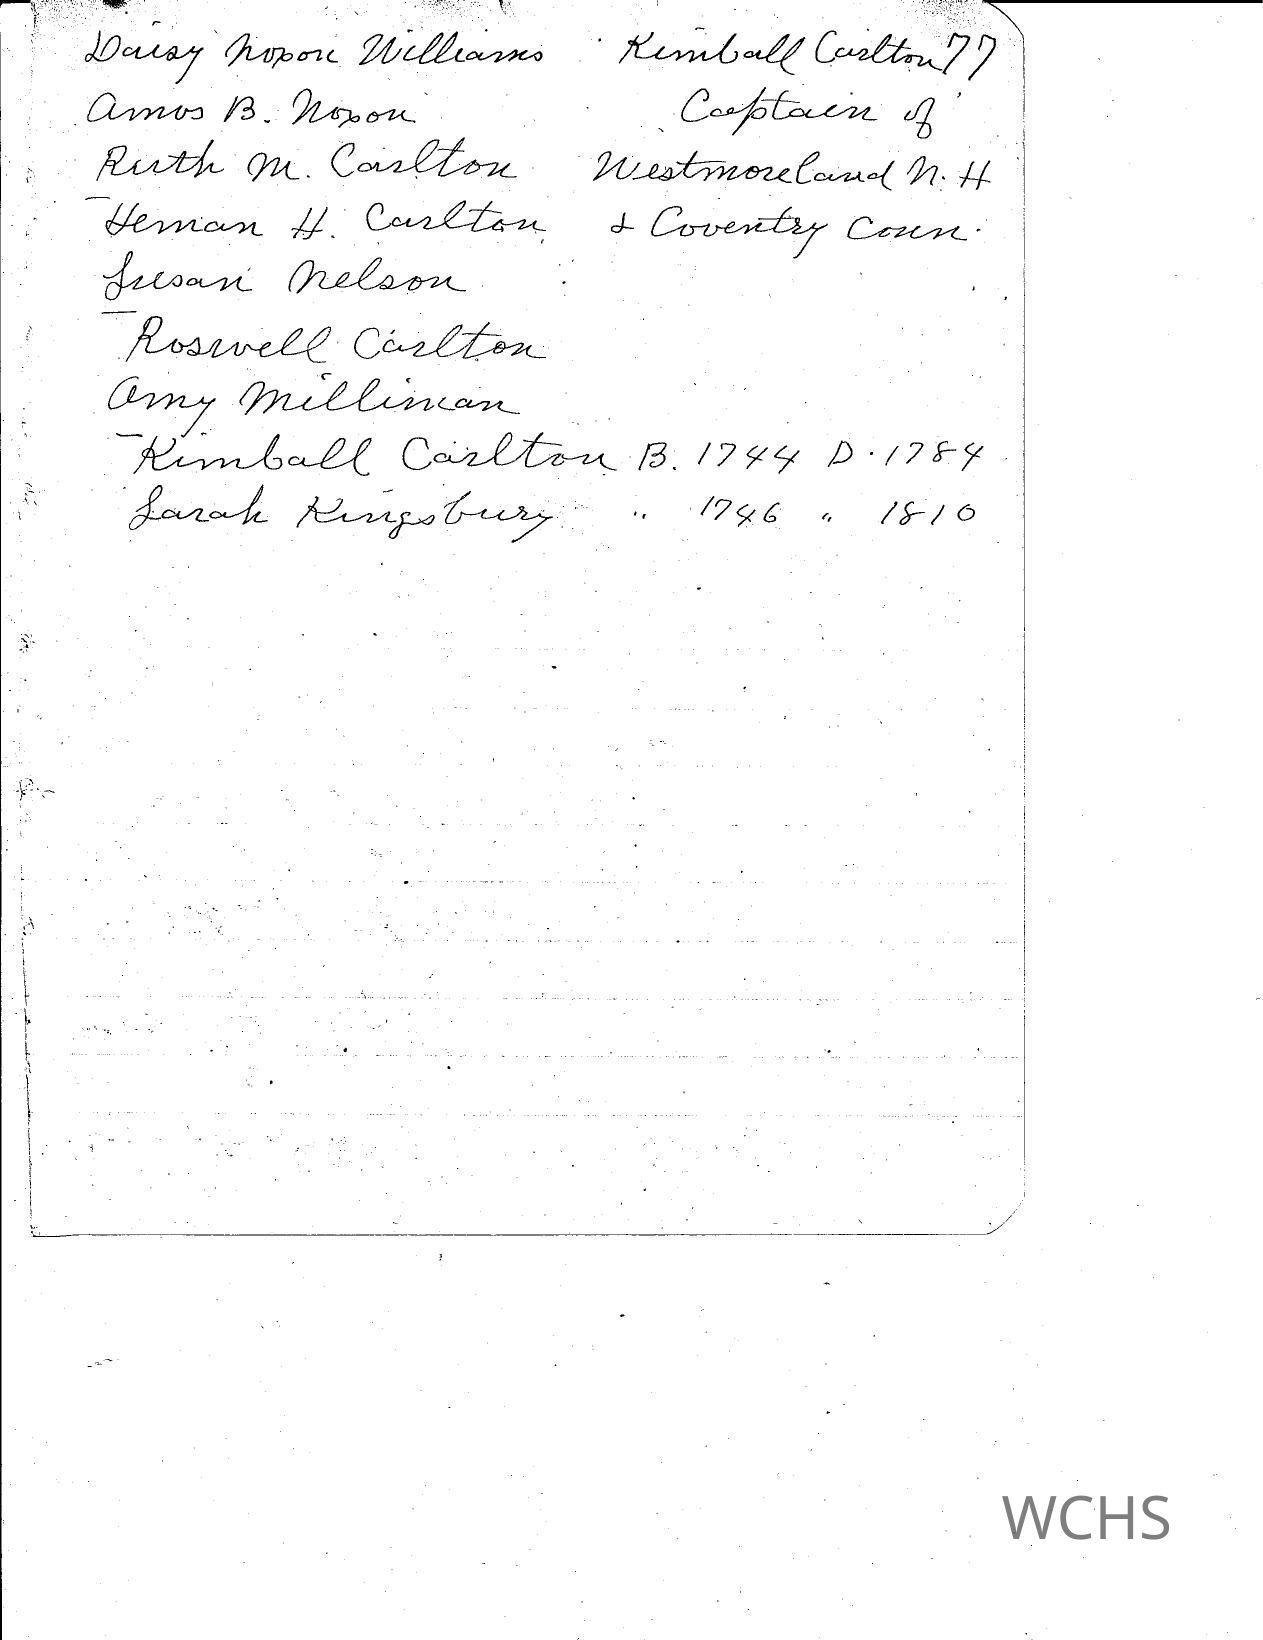 Daisy Noxon Williams
Amos B. Noxon
Ruth M. Carlton
Heman H. Carlton
Susan Nelson
Roswell Carlton
Amy Milliman
Kimball Carlton B. 1744 D. 1784
Sarah Kingsbury " 1746 " 1810
Kimball Carlton 77
Captain of
Westmoreland N. H
& Coventry Conn.
WCHS